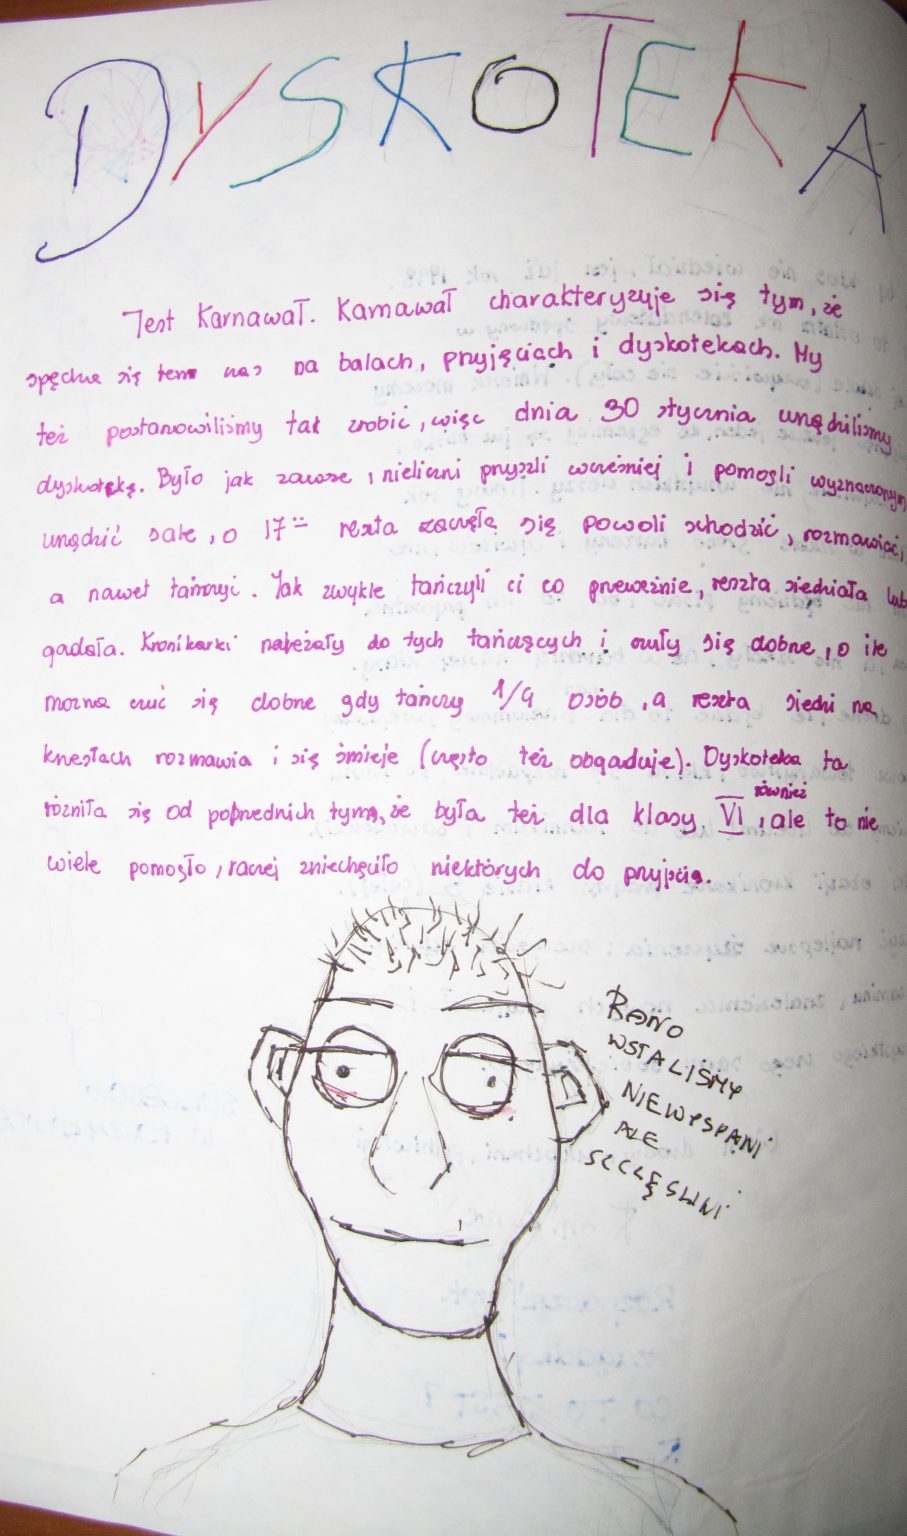 DYSKOTEKA
Jest Karnawał. Karnawał charakteryzuje się tym, że
spędza się ten czas na balach, przyjęciach i dyskotekach. My
też postanowiliśmy tak zrobić, więc dnia 30 stycznia urządziliśmy
dyskotekę. Było jak zawsze, nieliczni przyszli wcześniej i pomogli wyznaczonym
urządzić salę, o 17== reszta zaczęła się powoli schodzić, rozmawiać,
a nawet tańczyć. Jak zwykle tańczyli ci co przeważnie, reszta siedziała lub
gadała. Kronikarki należały do tych tańczących i czuły się dobrze, o ile
można czuć się dobrze gdy tańczy 1/4 osób, a reszta siedzi na
krzesłach rozmawia i się śmieje (często też obgaduje). Dyskoteka ta
różniła się od poprzednich tym, że była też dla klasy VI również, ale to nie
wiele pomogło, raczej zniechęciło niektórych do przyjścia.
RANO
WSTALIŚMY
NIEWYSPANI
ALE
SZCZĘŚLIWI